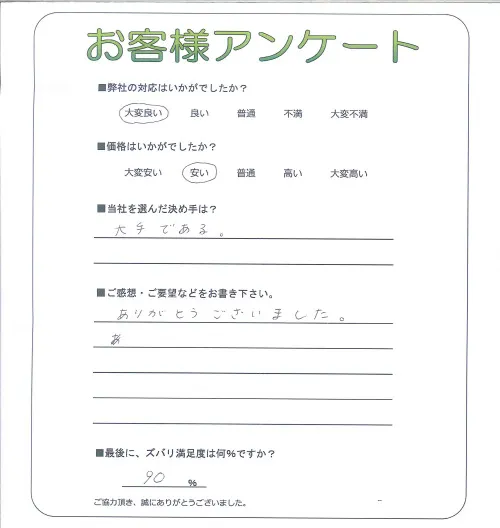 お客様アンケート
■弊社の対応はいかがでしたか？
大変良い 良い 普通 不満 大変不満
■価格はいかがでしたか？
大変安い 安い 普通 高い 大変高い
■当社を選んだ決め手は？
大手である。
■ご感想・ご要望などをお書き下さい。
ありがとうございました。
あ
■最後に、ズバリ満足度は何%ですか？
90 %
ご協力頂き、誠にありがとうございました。